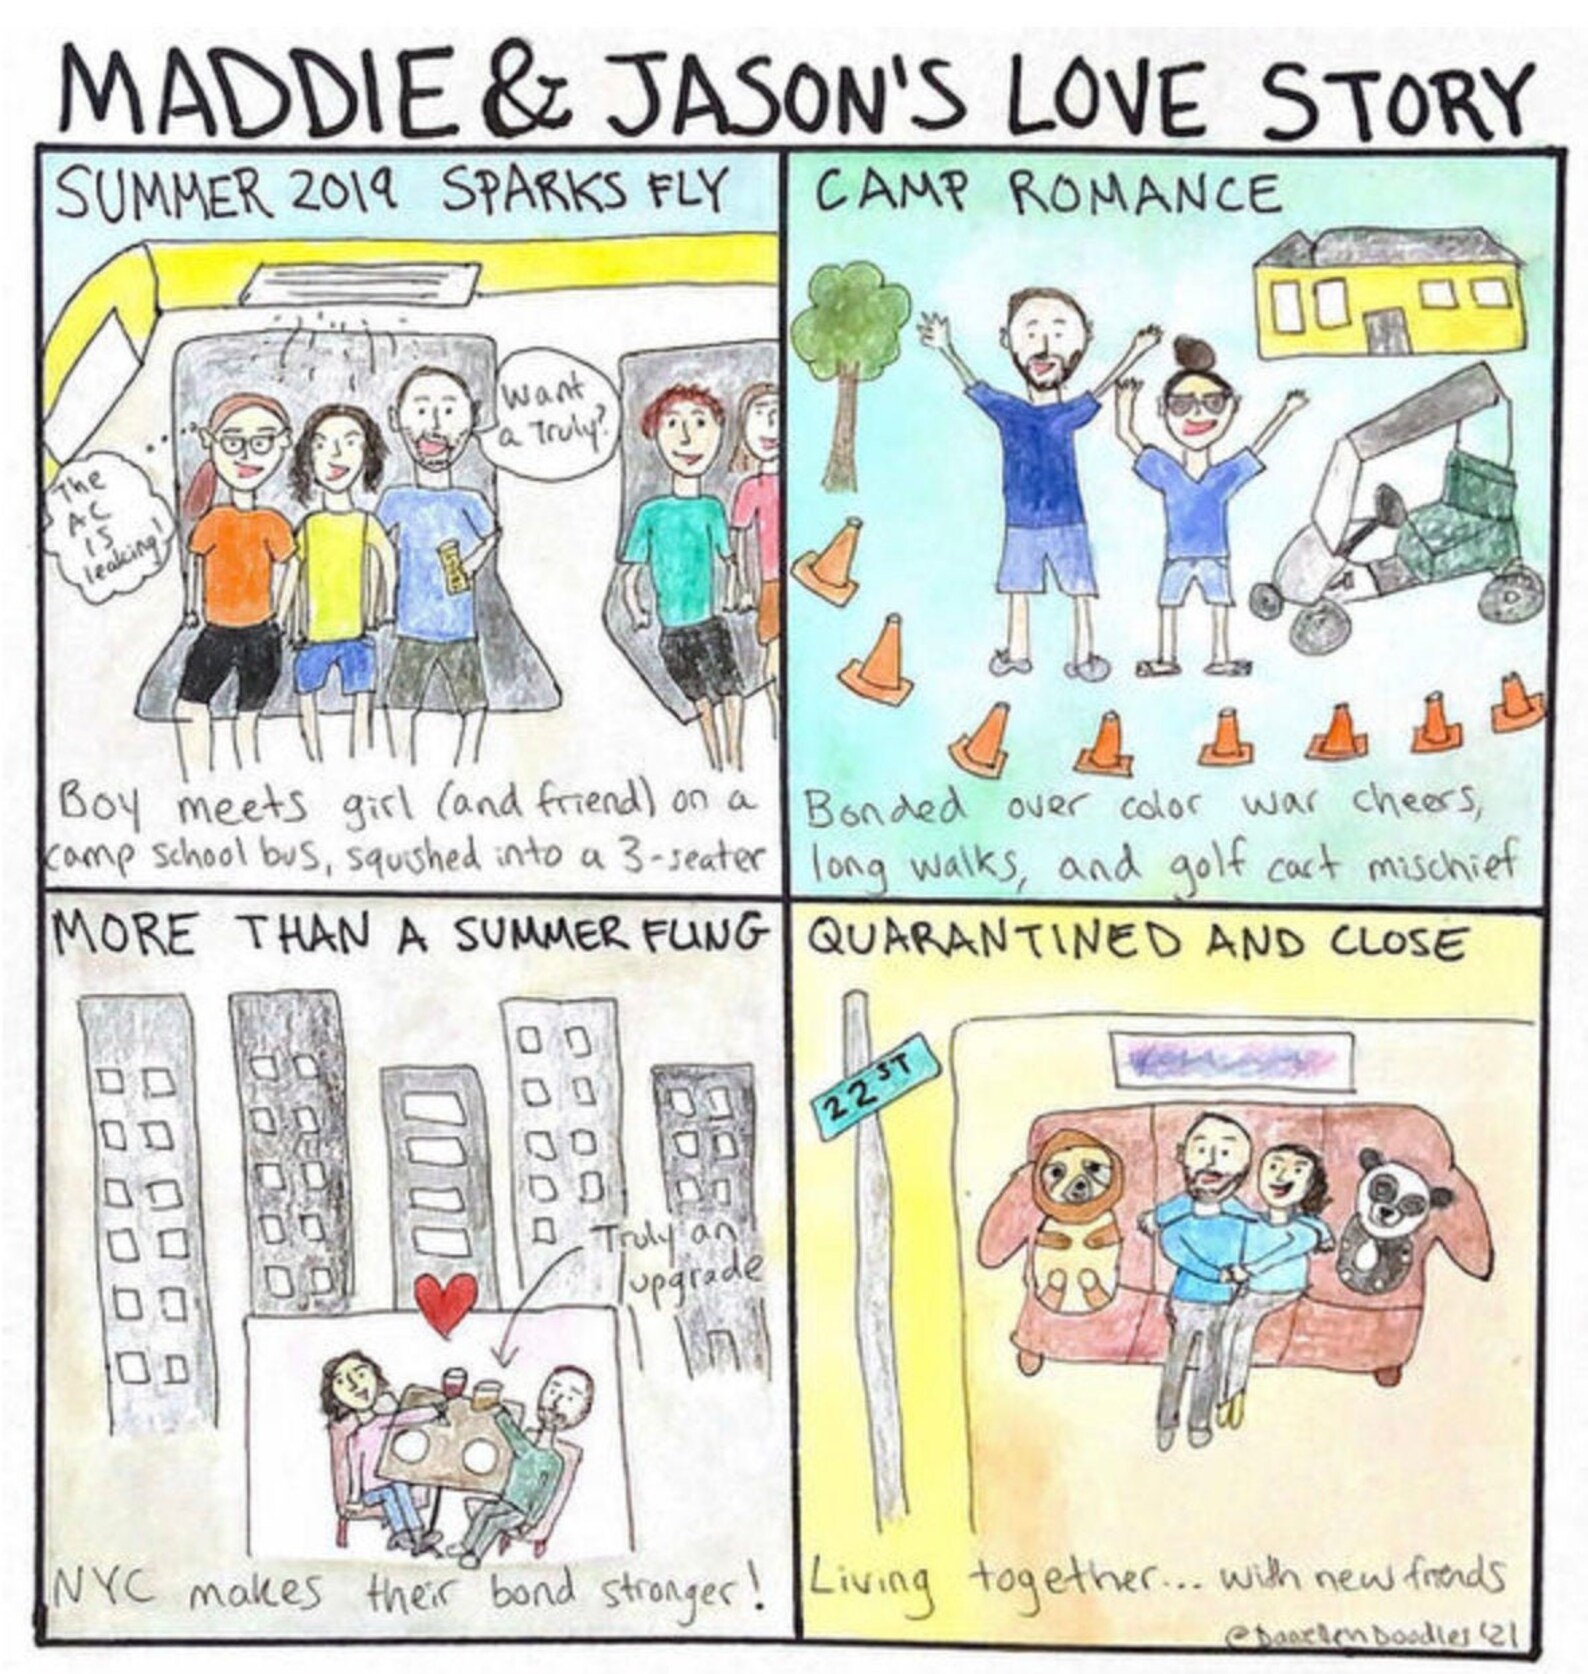 MADDIE & JASON'S LOVE STORY
SUMMER 2019 SPARKS FLY
The
AC
IS
leaking!
Want
a Truly?
Boy meets girl (and friend) on a
camp school bus, squished into a 3-seater
CAMP ROMANCE
Bonded over color war cheers,
long walks, and golf cart mischief
MORE THAN A SUMMER FLING
Truly an
upgrade
NYC makes their bond stronger!
QUARANTINED AND CLOSE
22 ST
Living together... with new friends
Doodles '21